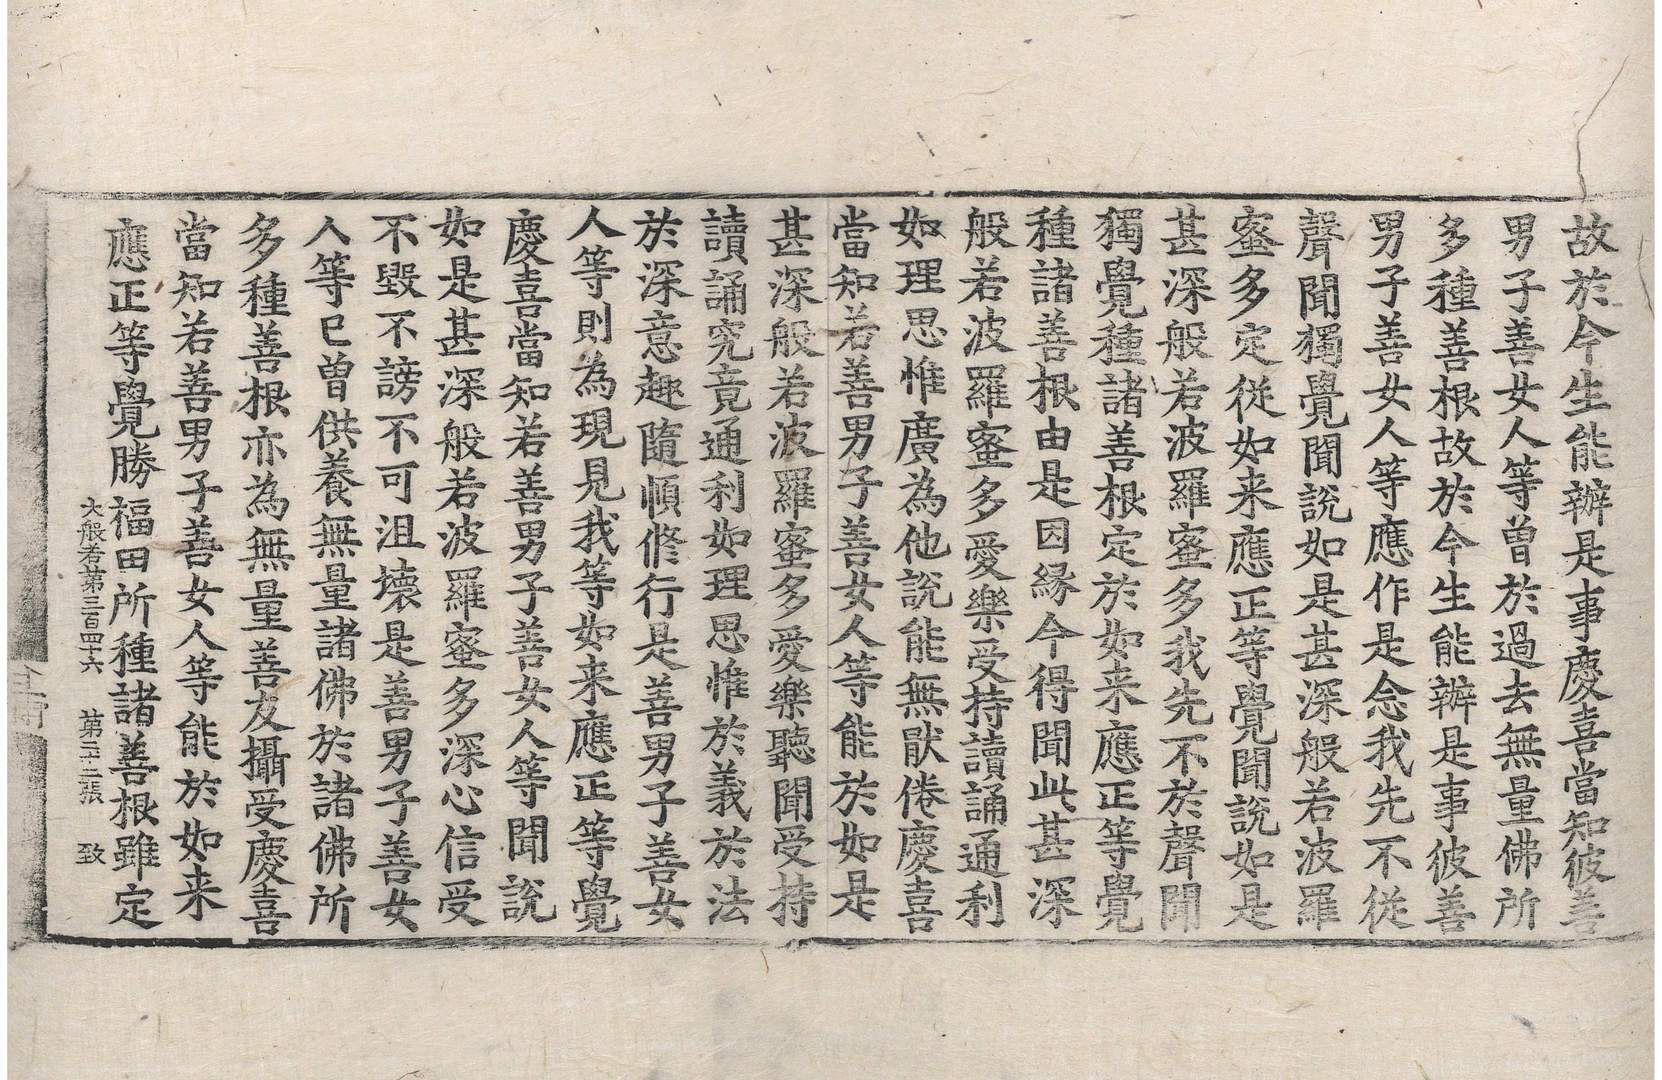 故於今生能辦是事慶喜當知彼善
男子善女人等曾於過去無量佛所
多種善根故於今生能辦是事彼善
男子善女人等應作是念我先不從
聲聞獨覺聞說如是甚深般若波羅
蜜多定從如来應正等覺聞說如是
甚深般若波羅蜜多我先不於聲聞
獨覺種諸善根定於如来應正等覺
種諸善根由是因緣今得聞此甚深
般若波羅蜜多愛樂受持讀誦通利
如理思惟廣為他說能無猒倦慶喜
當知若善男子善女人等能於如是
甚深般若波羅蜜多愛樂聽聞受持
讀誦究竟通利如理思惟於義於法
於深意趣隨順脩行是善男子善女
人等則為現見我等如来應正等覺
慶喜當知若善男子善女人等聞說
如是甚深般若波羅蜜多深心信受
不毀不謗不可沮壞是善男子善女
人等已曾供養無量諸佛於諸佛所
多種善根亦為無量善友攝受慶喜
當知若善男子善女人等能於如来
應正等覺勝福田所種諸善根雖定
大般若第三百四十六 第二十二張 致